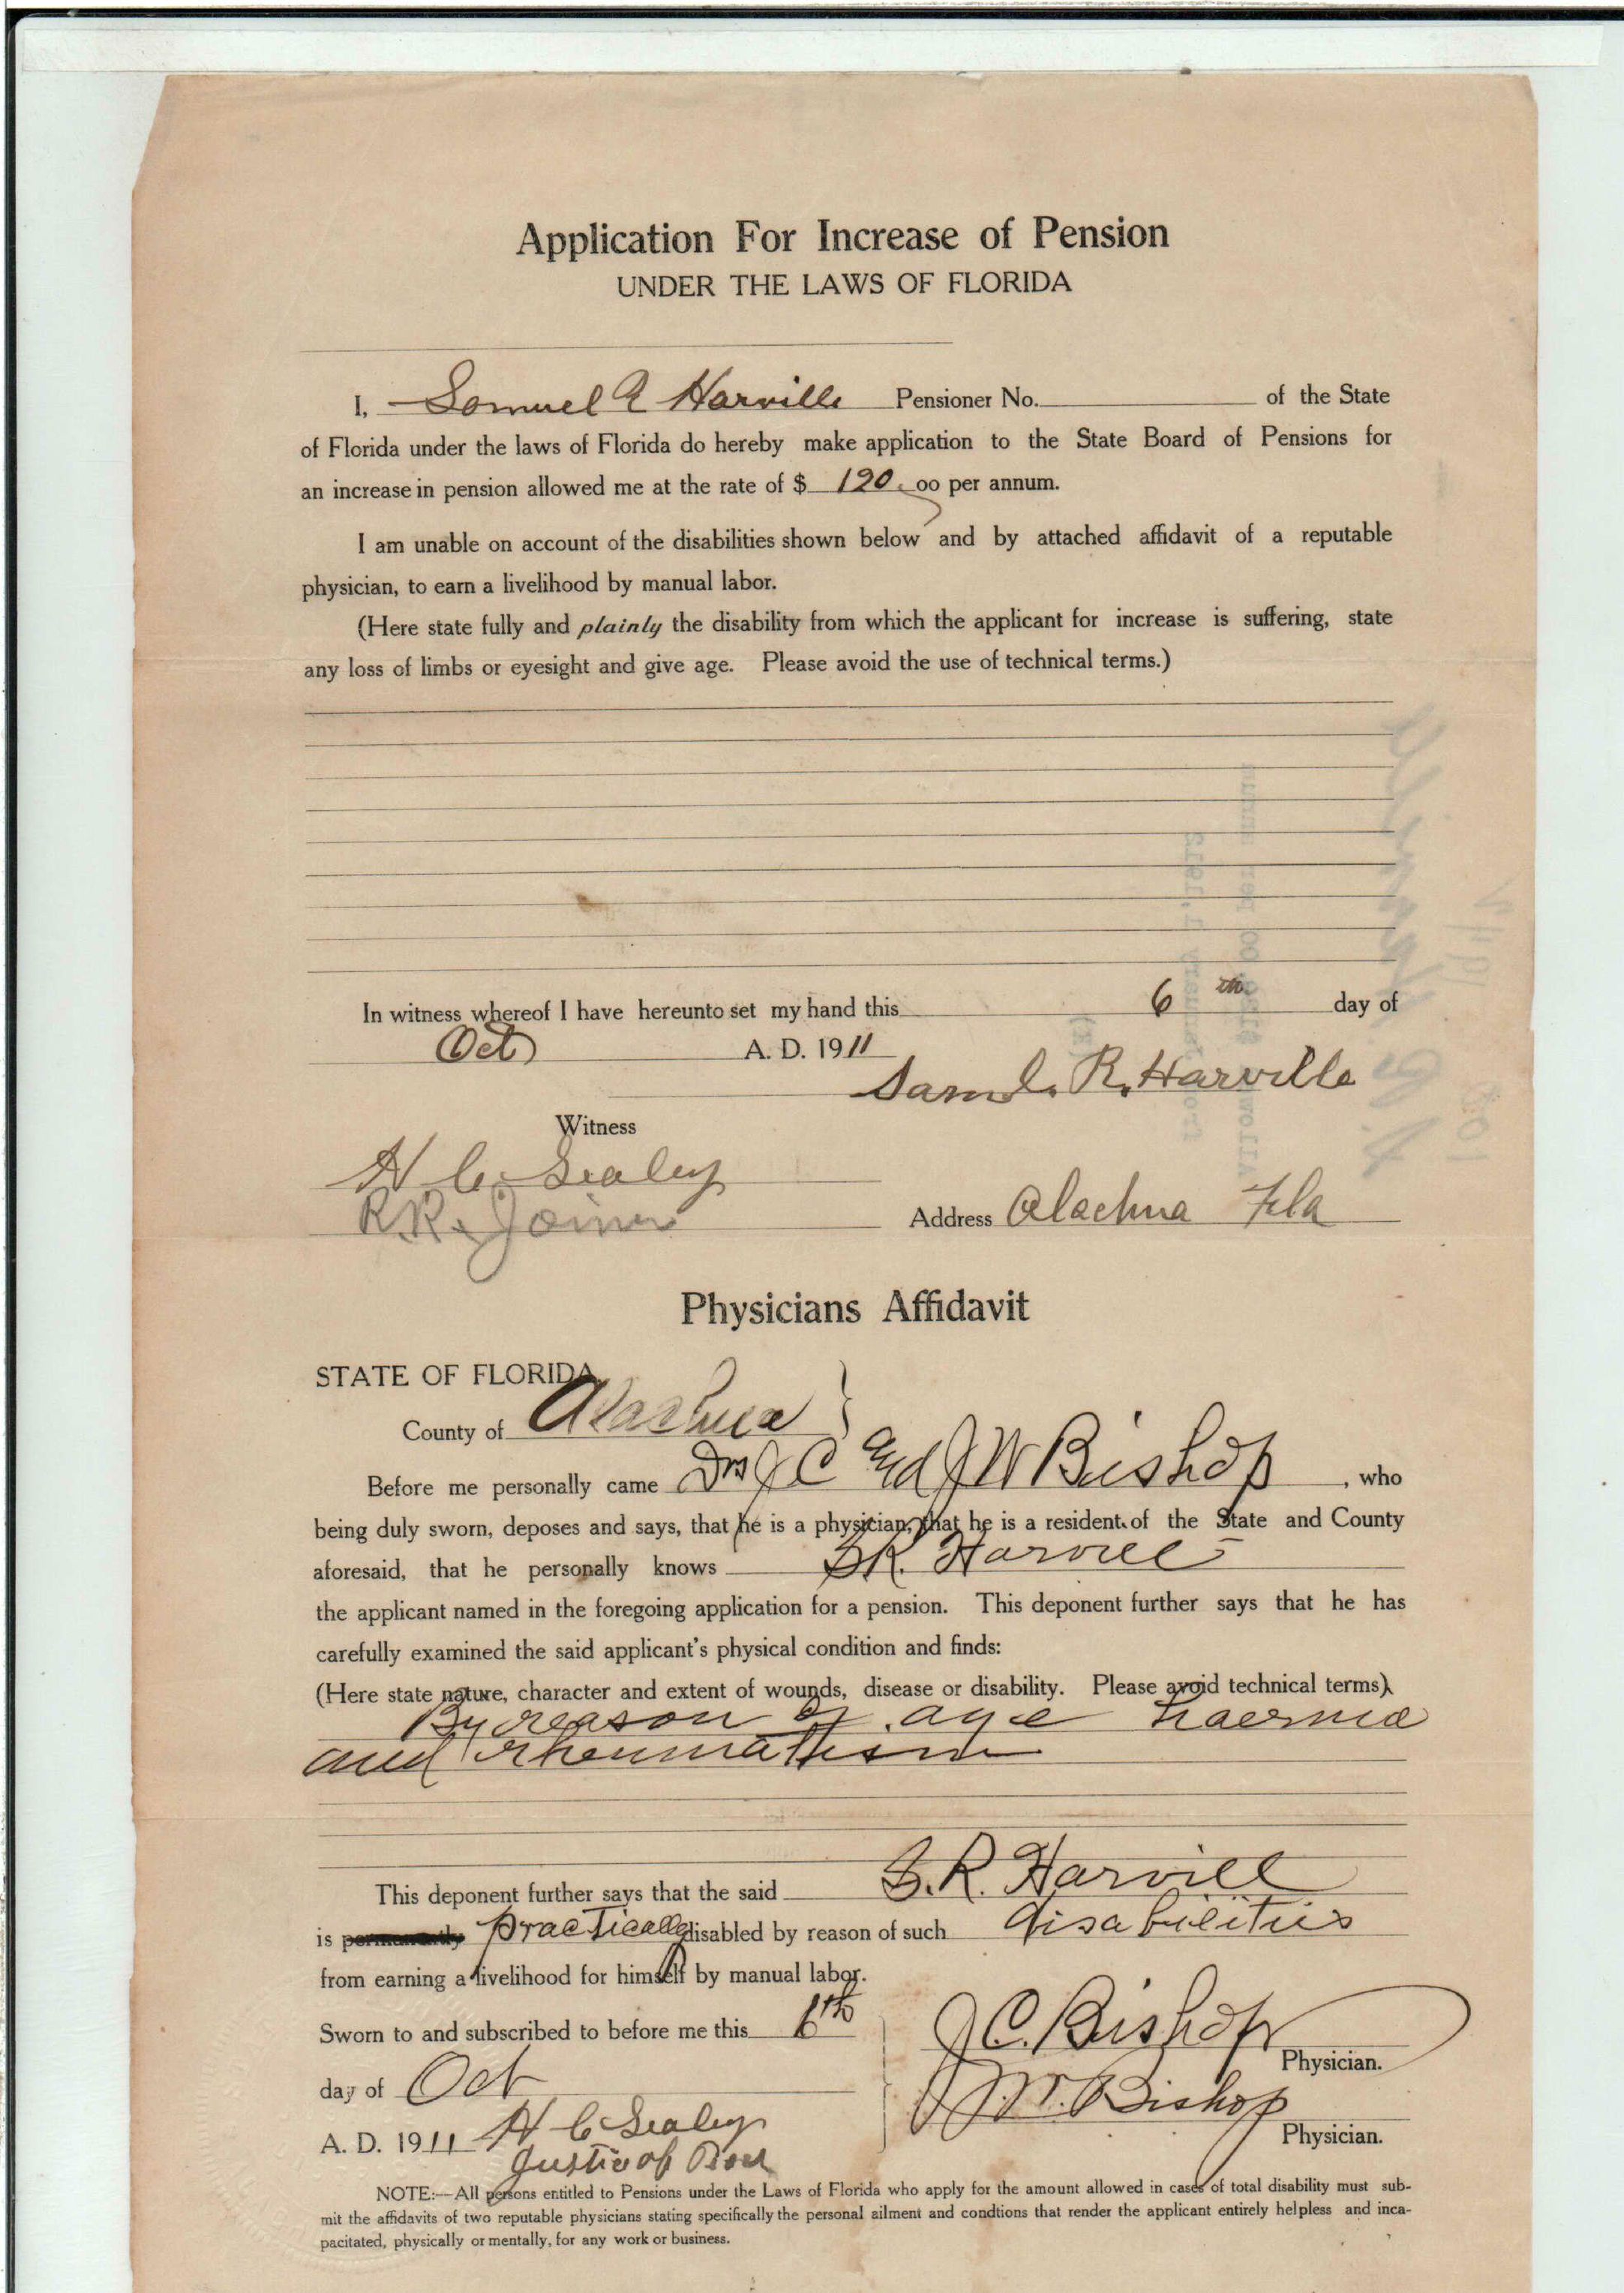 Application For Increase of Pension
UNDER THE LAWS OF FLORIDA
I, Samuel R Harville Pensioner No. of the State
of Florida under the laws of Florida do hereby make application to the State Board of Pensions for
an increase in pension allowed me at the rate of $ 120.00 per annum.
I am unable on account of the disabilities shown below and by attached affidavit of a reputable
physician, to earn a livelihood by manual labor.
(Here state fully and plainly the disability from which the applicant for increase is suffering, state
any loss of limbs or eyesight and give age. Please avoid the use of technical terms.)
In witness whereof I have hereunto set my hand this 6 th day of
Oct A. D. 1911
Saml. R. Harville
Witness
H C Sealey
R.R. Joiner
Address Alachua Fla
Physicians Affidavit
STATE OF FLORIDA
County of Alachua }
Before me personally came Drs J C and J W Bishop, who
being duly sworn, deposes and says, that he is a physician, that he is a resident of the State and County
aforesaid, that he personally knows S R. Harvill
the applicant named in the foregoing application for a pension. This deponent further says that he has
carefully examined the said applicant's physical condition and finds:
(Here state nature, character and extent of wounds, disease or disability. Please avoid technical terms)
By reason of age haernia
and rheumatism
This deponent further says that the said S. R. Harvill
is permanently practically disabled by reason of such disabilities
from earning a livelihood for himself by manual labor.
Sworn to and subscribed to before me this 6th
day of Oct
A. D. 1911 H C Sealey
Justic of Peace
J C. Bishop
Physician.
J W. Bishop
Physician.
NOTE:—All persons entitled to Pensions under the Laws of Florida who apply for the amount allowed in cases of total disability must sub-
mit the affidavits of two reputable physicians stating specifically the personal ailment and condtions that render the applicant entirely helpless and inca-
pacitated, physically or mentally, for any work or business.